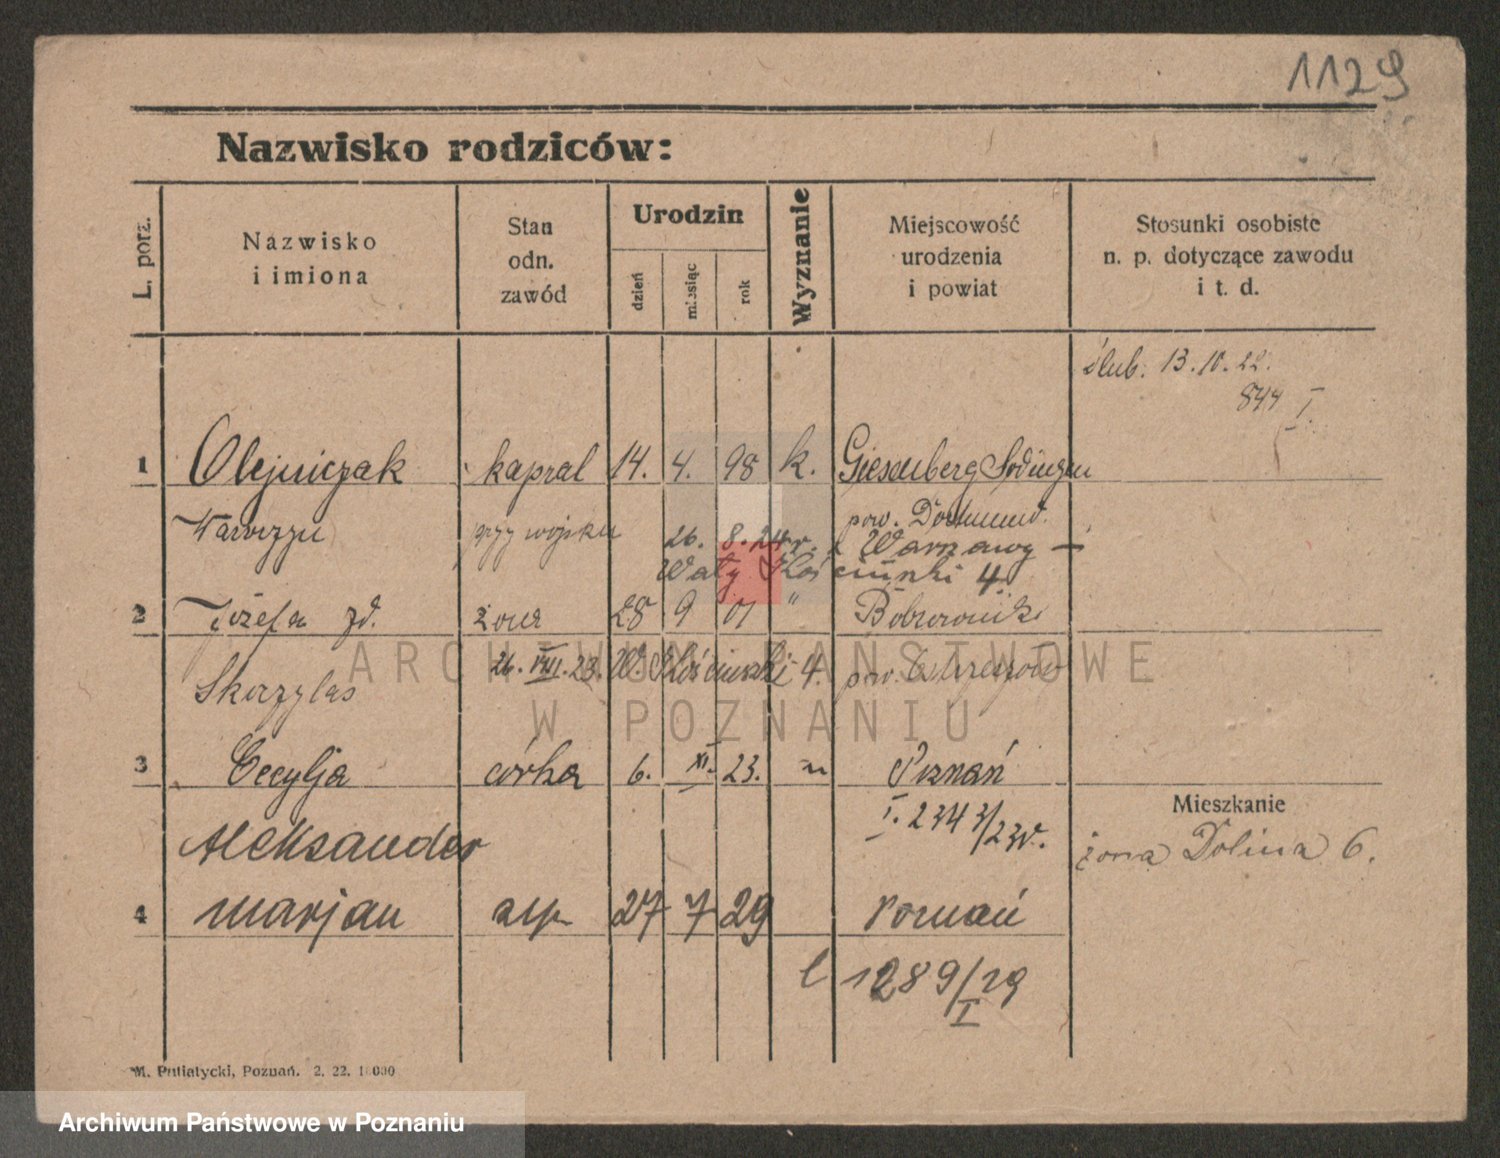 1129
Nazwisko rodziców:
L. porz.
Nazwisko
i imiona
Stan
odn.
zawód
Urodzin
dzień
miesiąc
rok
Wyznanie
Miejscowość
urodzenia
i powiat
Stosunki osobiste
n. p. dotyczące zawodu
i t. d.
ślub. 13.10.22.
844 I.
1 Olejniczak kapral 14. 4. 98 k. Giesenberg Sodingen
Wawrzyn przy wojsku pow. Dortmund.
26. 8. 24 r. z Warszawy –
Wały Kościuszki 4.
2 Józefa zd. żona 28 9 01 " Bobrowniki
Skorzylas 26. VIII. 23. W. Kościuszki 4. pow. Ostrzeszów
ARCHIWUM PAŃSTWOWE
W POZNANIU
3 Cecylja córka 6. XI. 23. " Poznań
I. 2343/23r.
Mieszkanie
żona Dolina 6.
Aleksander
4 Marjan syn 27 7 29 Poznań
1289/29
I
M. Putiatycki, Poznań. 2. 22. 10000
Archiwum Państwowe w Poznaniu